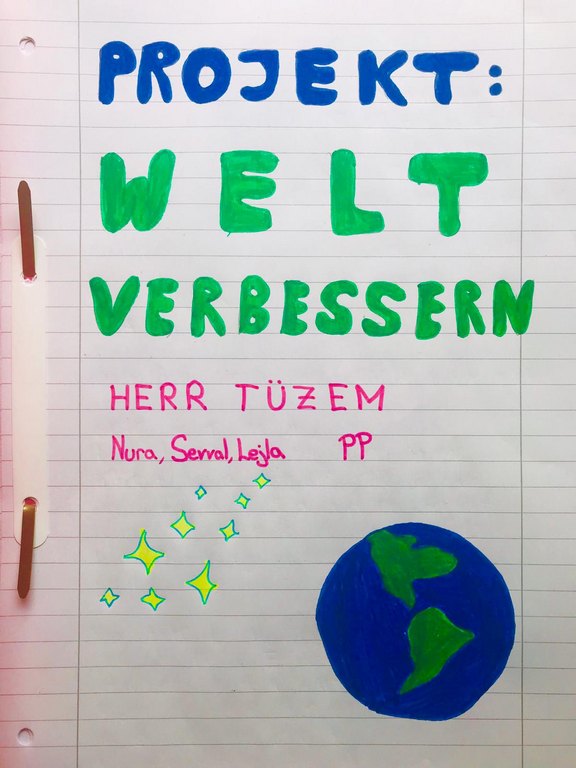 PROJEKT:
WELT
VERBESSERN
HERR TÜZEM
Nura, Serval, Lejla PP